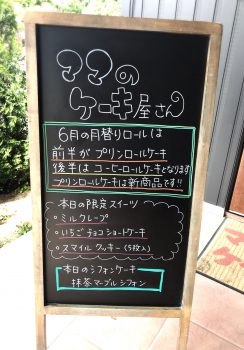 ママの
ケーキ屋さん
6月の月替りロールは
前半がプリンロールケーキ
後半はコーヒーロールケーキとなります
プリンロールケーキは新商品です!!
本日の限定スイーツ
◦ミルクレープ
◦いちごチョコショートケーキ
◦スマイルクッキー(5枚入)
本日のシフォンケーキ
抹茶マーブルシフォン